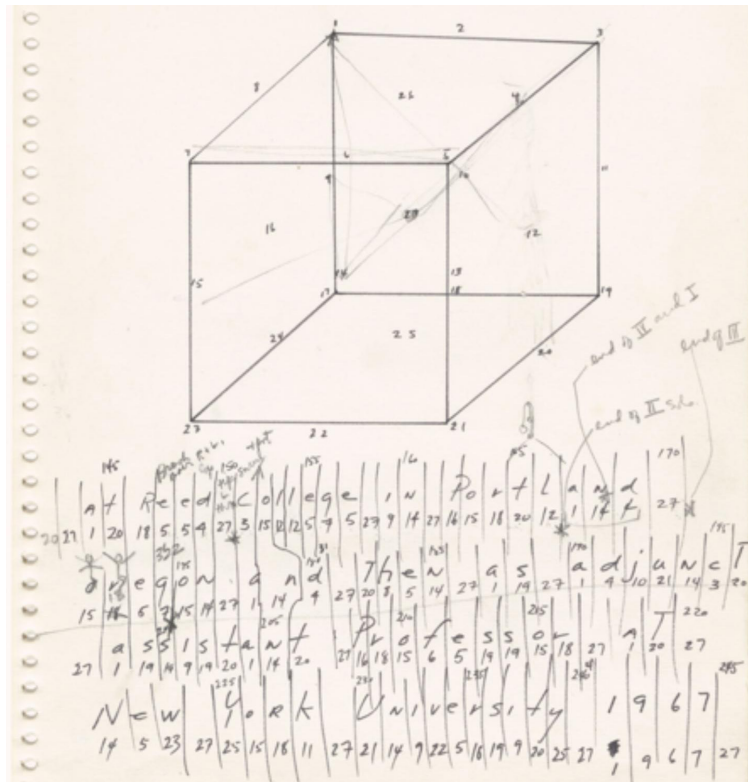 1 2 3
8 26 4
7 6 5
9 10 11
16 12
15 14 13
17 18 19
24 25 20
27 22 21
end of II and I
end of III
145 150 155 165 170
At Reed College in Portland
20 27 1 20 18 5 5 4 27 3 15 12 12 5 7 5 27 9 14 27 16 15 18 20 12 1 14 4 27
190 195
Oregon. and Then as adjuncT
15 18 5 7 15 14 27 1 14 4 27 20 8 5 14 27 1 19 27 1 4 10 21 14 3 20
205 210 215 220
assistant Professor aT
27 1 19 19 9 19 20 1 14 20 27 16 18 15 6 5 19 19 15 18 27 1 20 27
225 230 235 245
New York University 1967
14 5 23 27 25 15 18 11 27 21 14 9 22 5 18 19 9 20 25 27 1 9 6 7 27